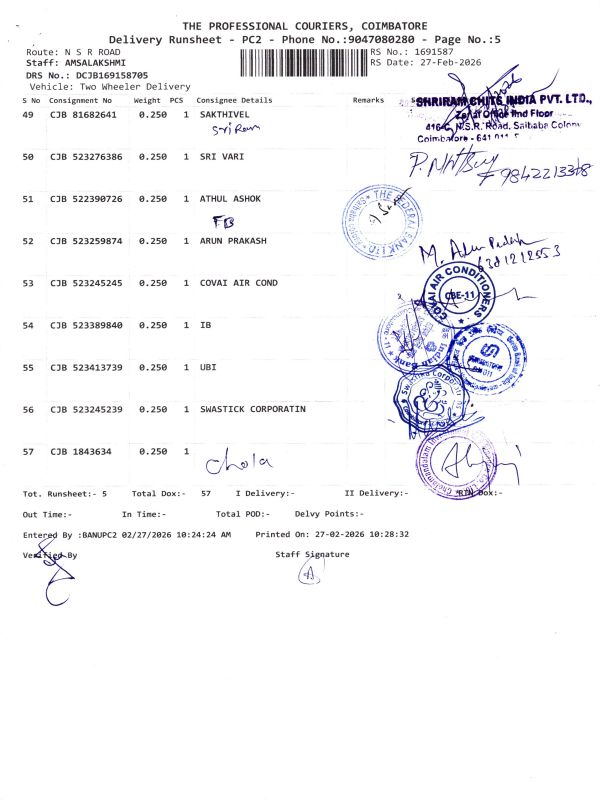 THE PROFESSIONAL COURIERS, COIMBATORE
Delivery Runsheet - PC2 - Phone No.:9047080280 - Page No.:5
Route: N S R ROAD
RS No.: 1691587
Staff: AMSALAKSHMI
RS Date: 27-Feb-2026
DRS No.: DCJB169158705
Vehicle: Two Wheeler Delivery
S No Consignment No Weight PCS Consignee Details Remarks
49 CJB 81682641 0.250 1 SAKTHIVEL
Sri Ram
SHRIRAM CHITS INDIA PVT. LTD.,
Zonal Office IInd Floor
416-C, N.S.R. Road, Saibaba Colony
Coimbatore - 641 011
50 CJB 523276386 0.250 1 SRI VARI
9842213318
51 CJB 522390726 0.250 1 ATHUL ASHOK
FB
THE FEDERAL BANK LTD
52 CJB 523259874 0.250 1 ARUN PRAKASH
M. Arun Prakash
53 CJB 523245245 0.250 1 COVAI AIR COND
COVAI AIR CONDITIONERS
CBE-11
54 CJB 523389840 0.250 1 IB
Indian Bank
55 CJB 523413739 0.250 1 UBI
56 CJB 523245239 0.250 1 SWASTICK CORPORATIN
Swastika Corporation
57 CJB 1843634 0.250 1
Chola
Tot. Runsheet:- 5 Total Dox:- 57 I Delivery:- II Delivery:- RTN Dox:-
Out Time:- In Time:- Total POD:- Delvy Points:-
Entered By :BANUPC2 02/27/2026 10:24:24 AM Printed On: 27-02-2026 10:28:32
Verified By Staff Signature